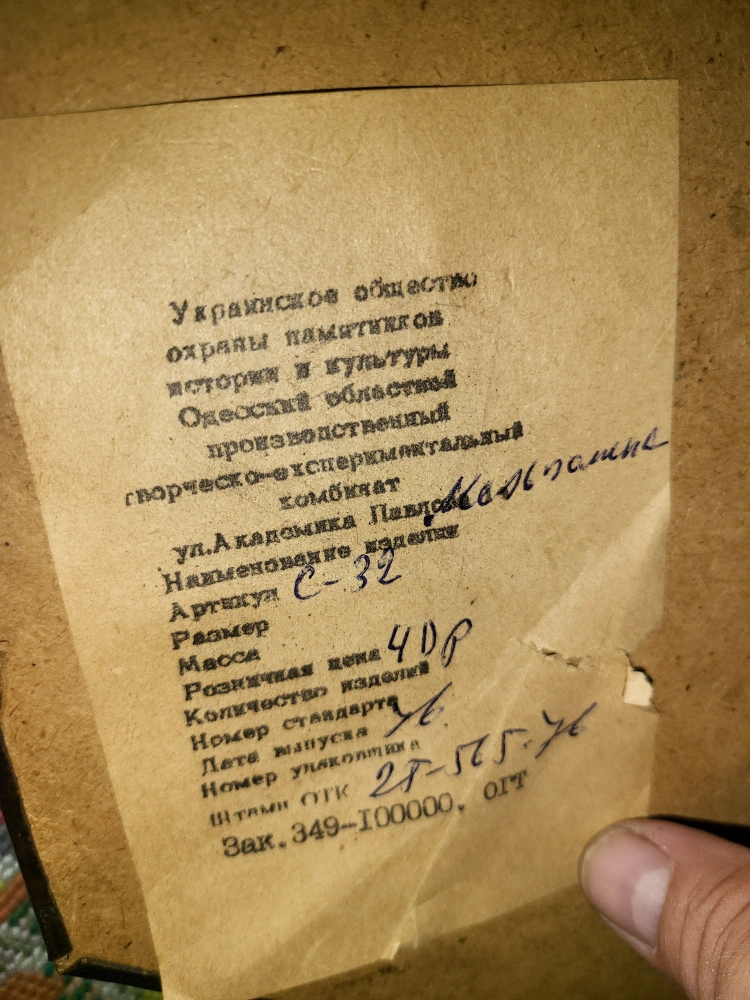 Украинское общество
охраны памятников
истории и культуры
Одесский областной
производственный
творческо-експериментальный
комбинат
ул.Академика Павлова
Наименование изделия
Артикул С-32
Размер
Масса
Розничная цена 40р
Количество изделий
Номер стандарта
Дата выпуска
Номер упаковщика
Штамп ОТК
Зак.349-I00000.